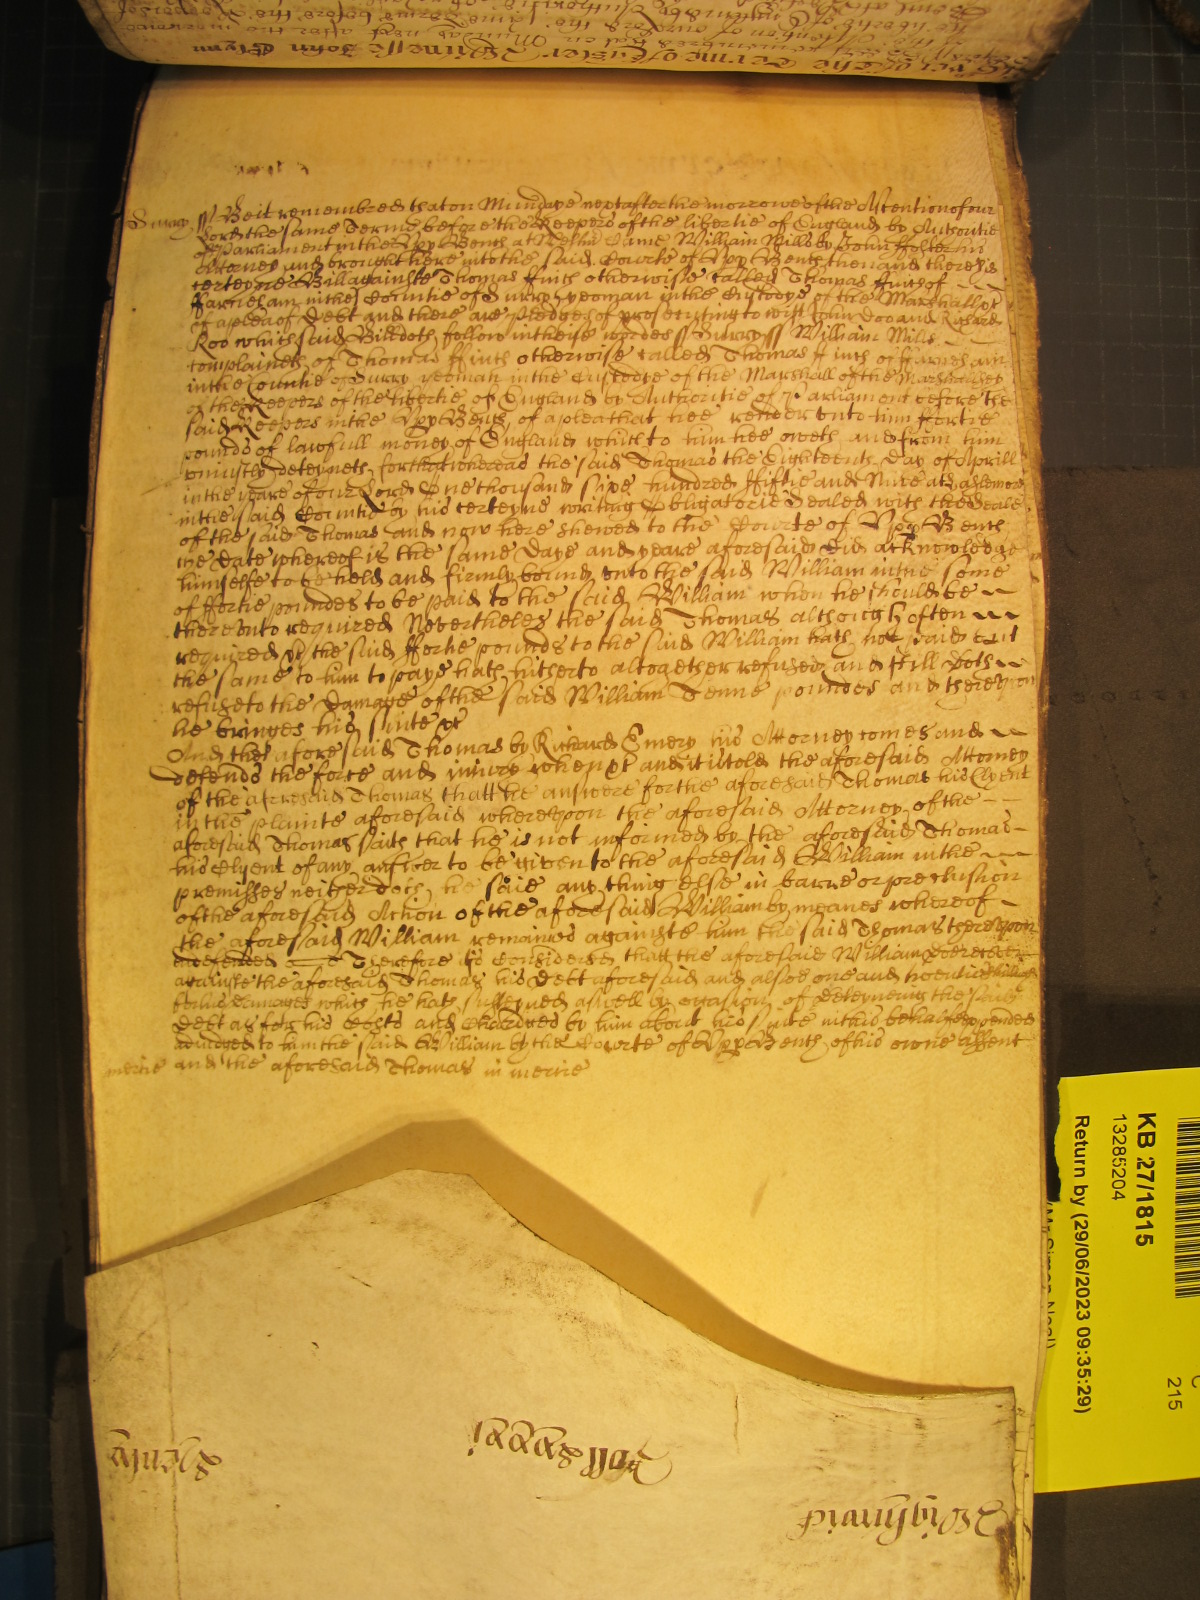 Surry
Be it remembred that on Mundaye next after the morrowe of the Ascention of our
Lord the same Terme before the Keepers of the libertie of England by Authoritie
of Parliament in the Upp Bench at Westm̃ Came William Mills by John
Attorney and brought here into the said Courte of Upp Bench then and there his
certeyne Bill againste Thomas ffinch otherwise called Thomas ffinch of
ffarneham in the Countie of Surry yeoman in the Custodye of the Marshall &c
of a plea of Debt and there are pledges of prosecuting to wit John Doo and Richard
Roo which said Bill doth follow in theise wordes ss Surry ss William Mills
complaineth of Thomas ffinch otherwise called Thomas ffinch of ffarneham
in the Countie of Surry yeoman in the Custodye of the Marshall of the Marshalsey
of the Keepers of the libertie of England by Authoritie of Parliament before the
said Keepers in the Upp Bench of a plea that hee render unto him ffortie
pounds of lawfull money of England which to him hee oweth and from him
uniustly deteyneth for that whereas the said Thomas the Eighteenth Day of Aprill
in the yeare of our Lord One thousand sixe hundred ffiftie and Nine at Haslemere
in the said Countie by his certeyne writing Obligatorie Sealed with the Seale
of the said Thomas and now here shewed to the Courte of Upp Bench
the Date whereof is the same Daye and yeare aforesaid did acknowledge
himselfe to be held and firmly bound unto the said William in the some
of ffortie poundes to be paid to the said William when he should be
thereunto required Nevertheles the said Thomas although often
required &c the said ffortie pounds to the said William hath not paid but
the same to him to paye hath hitherto altogether refused and still doth
refuse to the Damage of the said William Tenne poundes and thereupon
he bringes his suite &c
And the aforesaid Thomas by Richard Emery his Attorney comes and
defends the force and iniury when &c and it is told the aforesaid Attorney
of the aforesaid Thomas that he answere for the aforesaid Thomas his Clyent
in the plainte aforesaid whereupon the aforesaid Attorney of the
aforesaid Thomas saith that he is not informed by the aforesaid Thomas
his Clyent of any answer to be given to the aforesaid William in the
premisses neither doth he saie any thing else in barre or preclusion
of the aforesaid Action of the aforesaid William by meanes whereof
the aforesaid William remaines against him the said Thomas thereupon
undefended Therefore it is Considered that the aforesaid William doe recover
againste the aforesaid Thomas his Debt aforesaid and alsoe one and twentie shillings
for his damages which he hath susteyned aswell by occasion of deteyneing the said
Debt as for his Costs and Chardges by him about his suite in this behalfe expended
adiudged to him the said William by the Courte of Upp Bench of his owne assent
mercie and the aforesaid Thomas in mercie
Henly
Roll xxxi
Wightwick
KB 27/1815
13285204
Return by (29/06/2023 09:35:29)
215